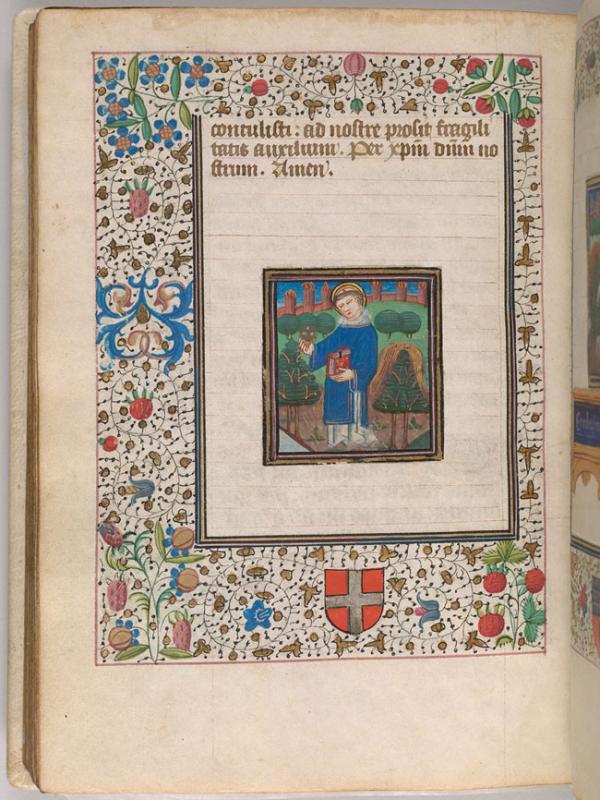 contulisti : ad nostre prosit fragili
tatis auxilium. Per xpm dnm no
strum. Amen.